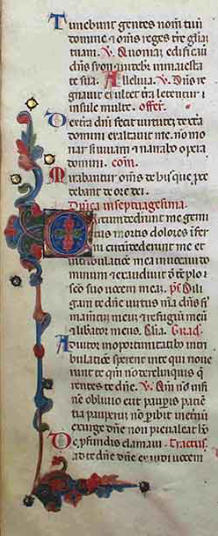 Timebunt gentes nom tuū
domine ⁊ om̄s reges tr̄e gl̄iaz
tuam. V. Quoniaz edificauit
dn̄s syon ⁊ uidebit in maiesta
te sua. Alleluia. V. Dn̄s re
gnauit exultet tr̄a letentur i
insule multe. offert.
Dextera dn̄i fecit uirtutez dextra
domini exaltauit me. nō mo
riar sz uiuam ⁊ narrabo opera
domini. com̄.
Mirabantur om̄s de his que pro
cedebant de ore dei.
Dn̄ica in septuagesima.
Circumdederunt me gemi
tus mortis dolores ifer
ni circūdederunt me et
in tribulatiōe mea inuocaui do
minum ⁊ exaudiuit de tēplo
sc̄o suo uocem meaz. ps̄ Dili
gam te dn̄e uirtus mea dn̄s fir
mam̄tuz meuz ⁊ refugiū meū
⁊ liberator meus. Gl̄ia. Grad.
Adiutor in oportunitatibz in tri
bulatiōe sperent in te qui noue
runt te qm̄ nō derelinquis q
rentes te dn̄e. V. Qm̄ nō in fi
nē obliuio erit pauperis patiē
tia pauperuz nō peribit in et̄nū
exurge dn̄e non preualeat hō.
De profundis clamaui. Tractus.
ad te dn̄e dn̄e exaudi uocem